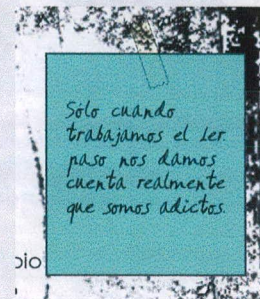 Sólo cuando
trabajamos el 1er
paso nos damos
cuenta realmente
que somos adictos.
bio